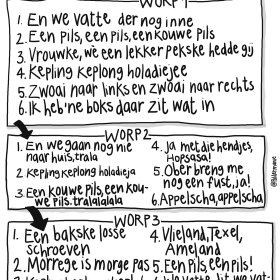 WORP 1
1. En we vatte der nog inne
2. Een pils, een pils, een kouwe pils
3. Vrouwke, wè een lekker pekske hedde gij
4. Kepling keplong holadiejee
5. Zwaai naar links en zwaai naar rechts
6. Ik heb'ne boks daar zit wat in
WORP 2
1. En we gaan nog nie
naar huis, trala
2 Kepling keplong holadieja
3 Een kouwe pils, een kou-
we pils. tralalalala
4. Ja met die hendjes,
Hopsasa!
5. Ober breng me
nog een fust, ja!
6. Appelscha, appelscha
WORP 3
1. Een bakske losse
schroeven
2. Morrege is morge pas
4. Vlieland, Texel,
Ameland
5. Een pils, een pils!